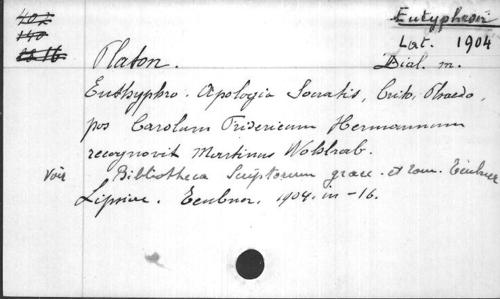 Eutyphron
Lat. 1904
Dial. m.
Platon.
Euthyphro. Apologia Socratis, Crito, Phaedo,
pos Carolum Fridericum Hermannum
recognovit Martinus Wohlrab.
voir Bibliotheca Scriptorum graec. et rom. Teubner
Lipsiae. Teubner. 1904. in-16.